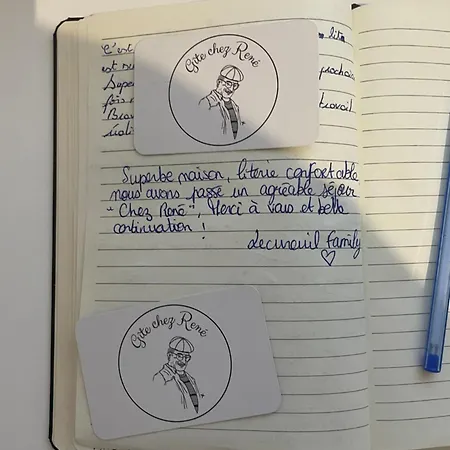 C'est
est
prochain
Supe
fois
travail
Brav
Gîte chez René
Superbe maison, literie confortable
nous avons passé un agréable séjour
"Chez René", Merci à vous et belle
continuation !
Lecureuil Family
Gîte chez René